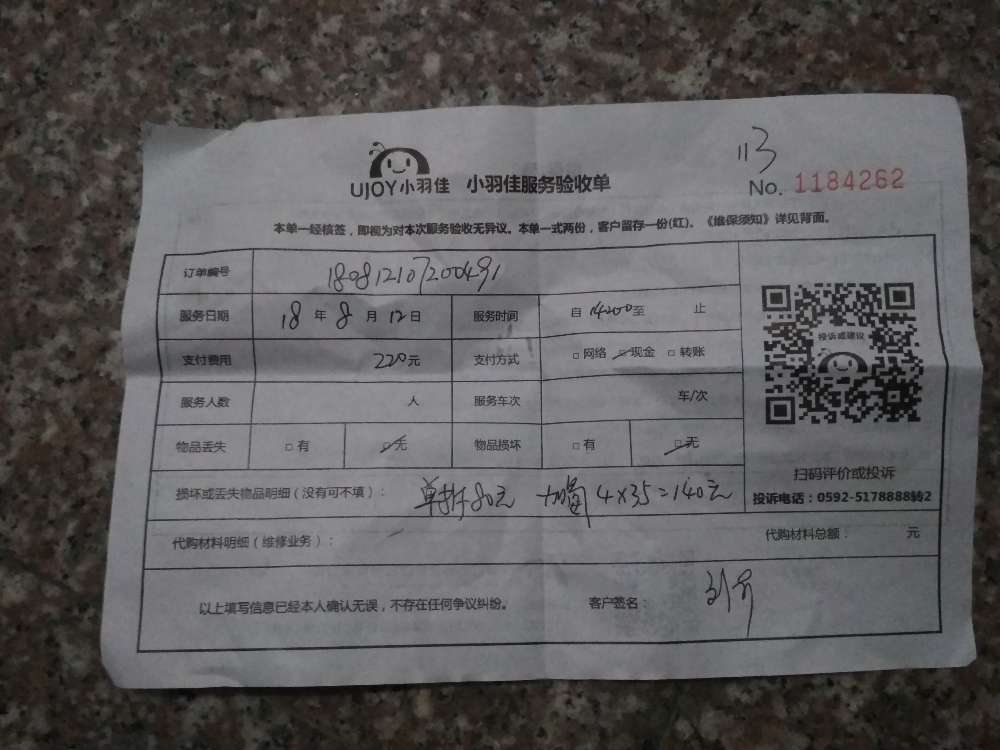 113
UJOY小羽佳 小羽佳服务验收单
No. 1184262
本单一经核签，即视为对本次服务验收无异议。本单一式两份，客户留存一份(红)。《维保须知》详见背面。
订单编号 180812107200491
服务日期 18 年 8 月 12 日 服务时间 自 14:00 至 止
支付费用 220元 支付方式 □ 网络 ☑ 现金 □ 转账
服务人数 人 服务车次 车/次
物品丢失 □ 有 ☑ 无 物品损坏 □ 有 ☑ 无
投诉或建议
扫码评价或投诉
投诉电话：0592-5178888转2
损坏或丢失物品明细（没有可不填）： 单拆80元 4×35=140元
代购材料明细（维修业务）： 代购材料总额： 元
以上填写信息已经本人确认无误，不存在任何争议纠纷。 客户签名：